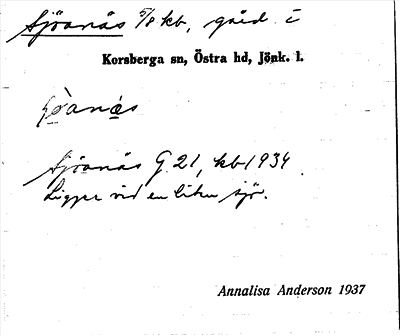 Sjöanäs 5/8 kb, gård i
Korsberga sn, Östra hd, Jönk. l.
Sjöanäs G. 21, kb 1934
Ligger vid en liten sjö.
Annalisa Anderson 1937